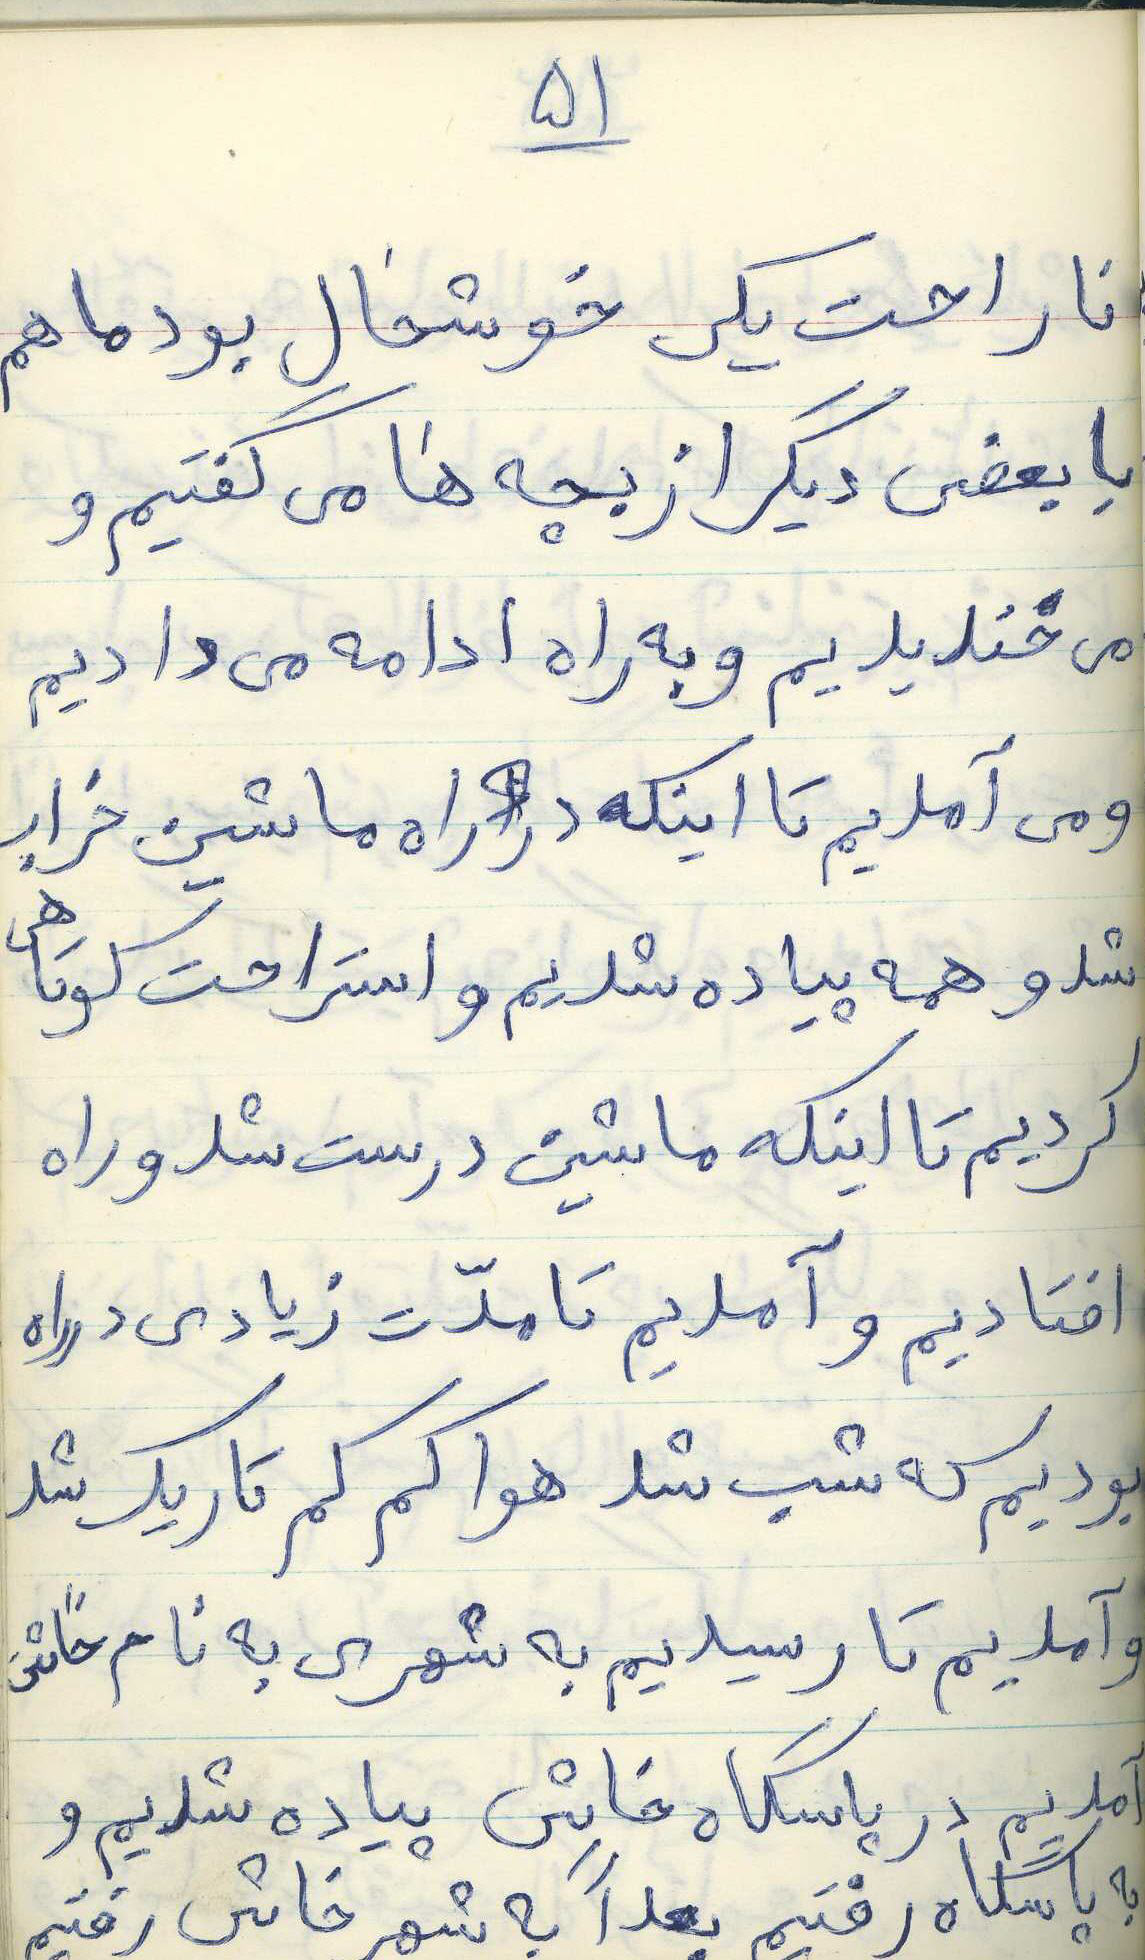 ۵۱
ناراحت یکی خوشحال بود ما هم
با بعضی دیگر از بچه ها می گفتیم و
می خندیدیم و به راه ادامه می دادیم
و می آمدیم تا اینکه در راه ماشین خراب
شد و همه پیاده شدیم و استراحت کوتاهی
کردیم تا اینکه ماشین درست شد و راه
افتادیم و آمدیم تا مدّت زیادی در راه
بودیم که شب شد هوا کم کم تاریک شد
و آمدیم تا رسیدیم به شهری به نام خاش
آمدیم در پاسگاه خاش پیاده شدیم و
به پاسگاه رفتیم بعداً به شهر خاش رفتیم